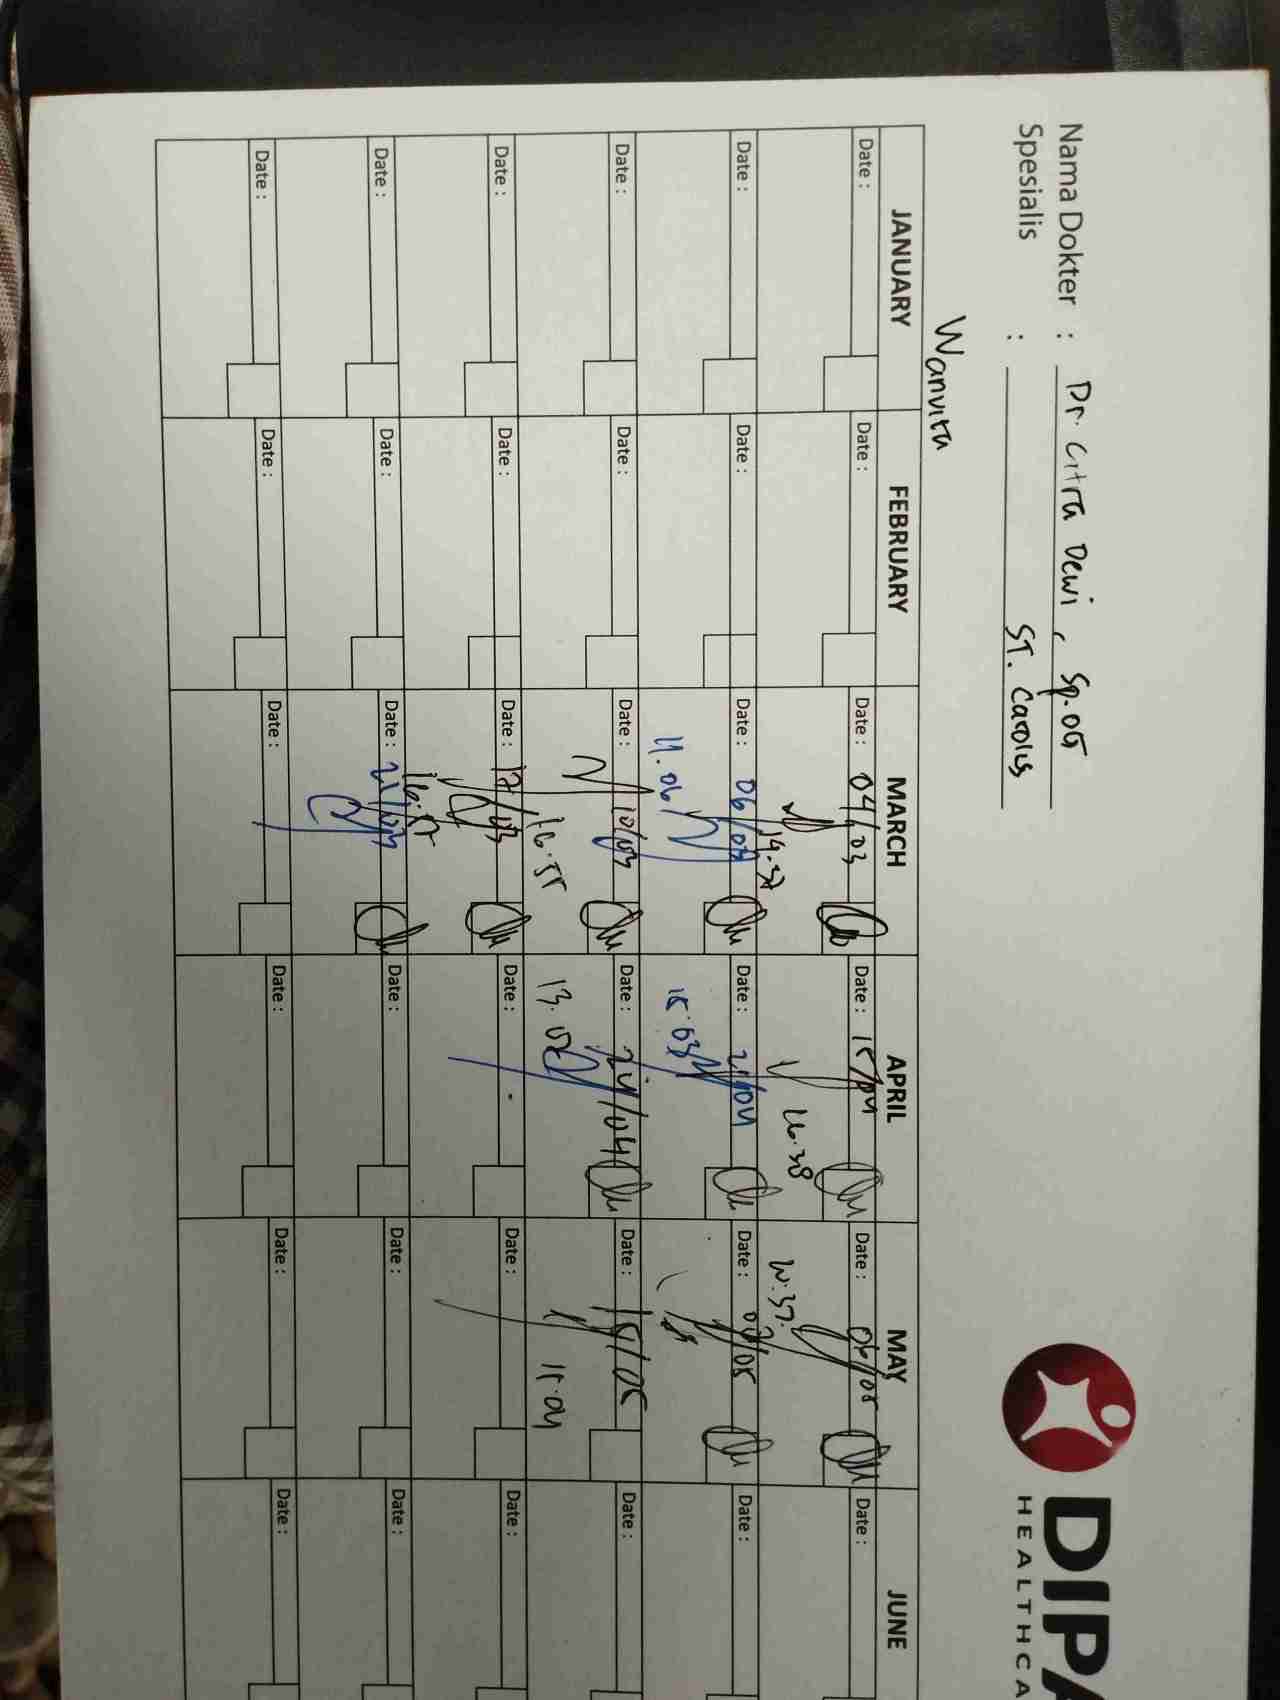 Nama Dokter : Dr. Citra Dewi, Sp.OG
Spesialis : ST. Carolus
DIPA
HEALTHCA
Wanvita
JANUARY FEBRUARY MARCH APRIL MAY JUNE
Date : Date : Date : 04/03 Date : 15/04 Date : 06/05 Date :
14.37 16.38
Date : Date : Date : 06/03 Date : 21/04 Date : 07/05 Date :
11.06 15.03
Date : Date : Date : 10/03 Date : 24/04 Date : 15/05 Date :
16.55 13.02 11.04
Date : Date : Date : 17/03 Date : Date : Date :
16.57
Date : Date : Date : 21/03 Date : Date : Date :
Date : Date : Date : Date : Date : Date :